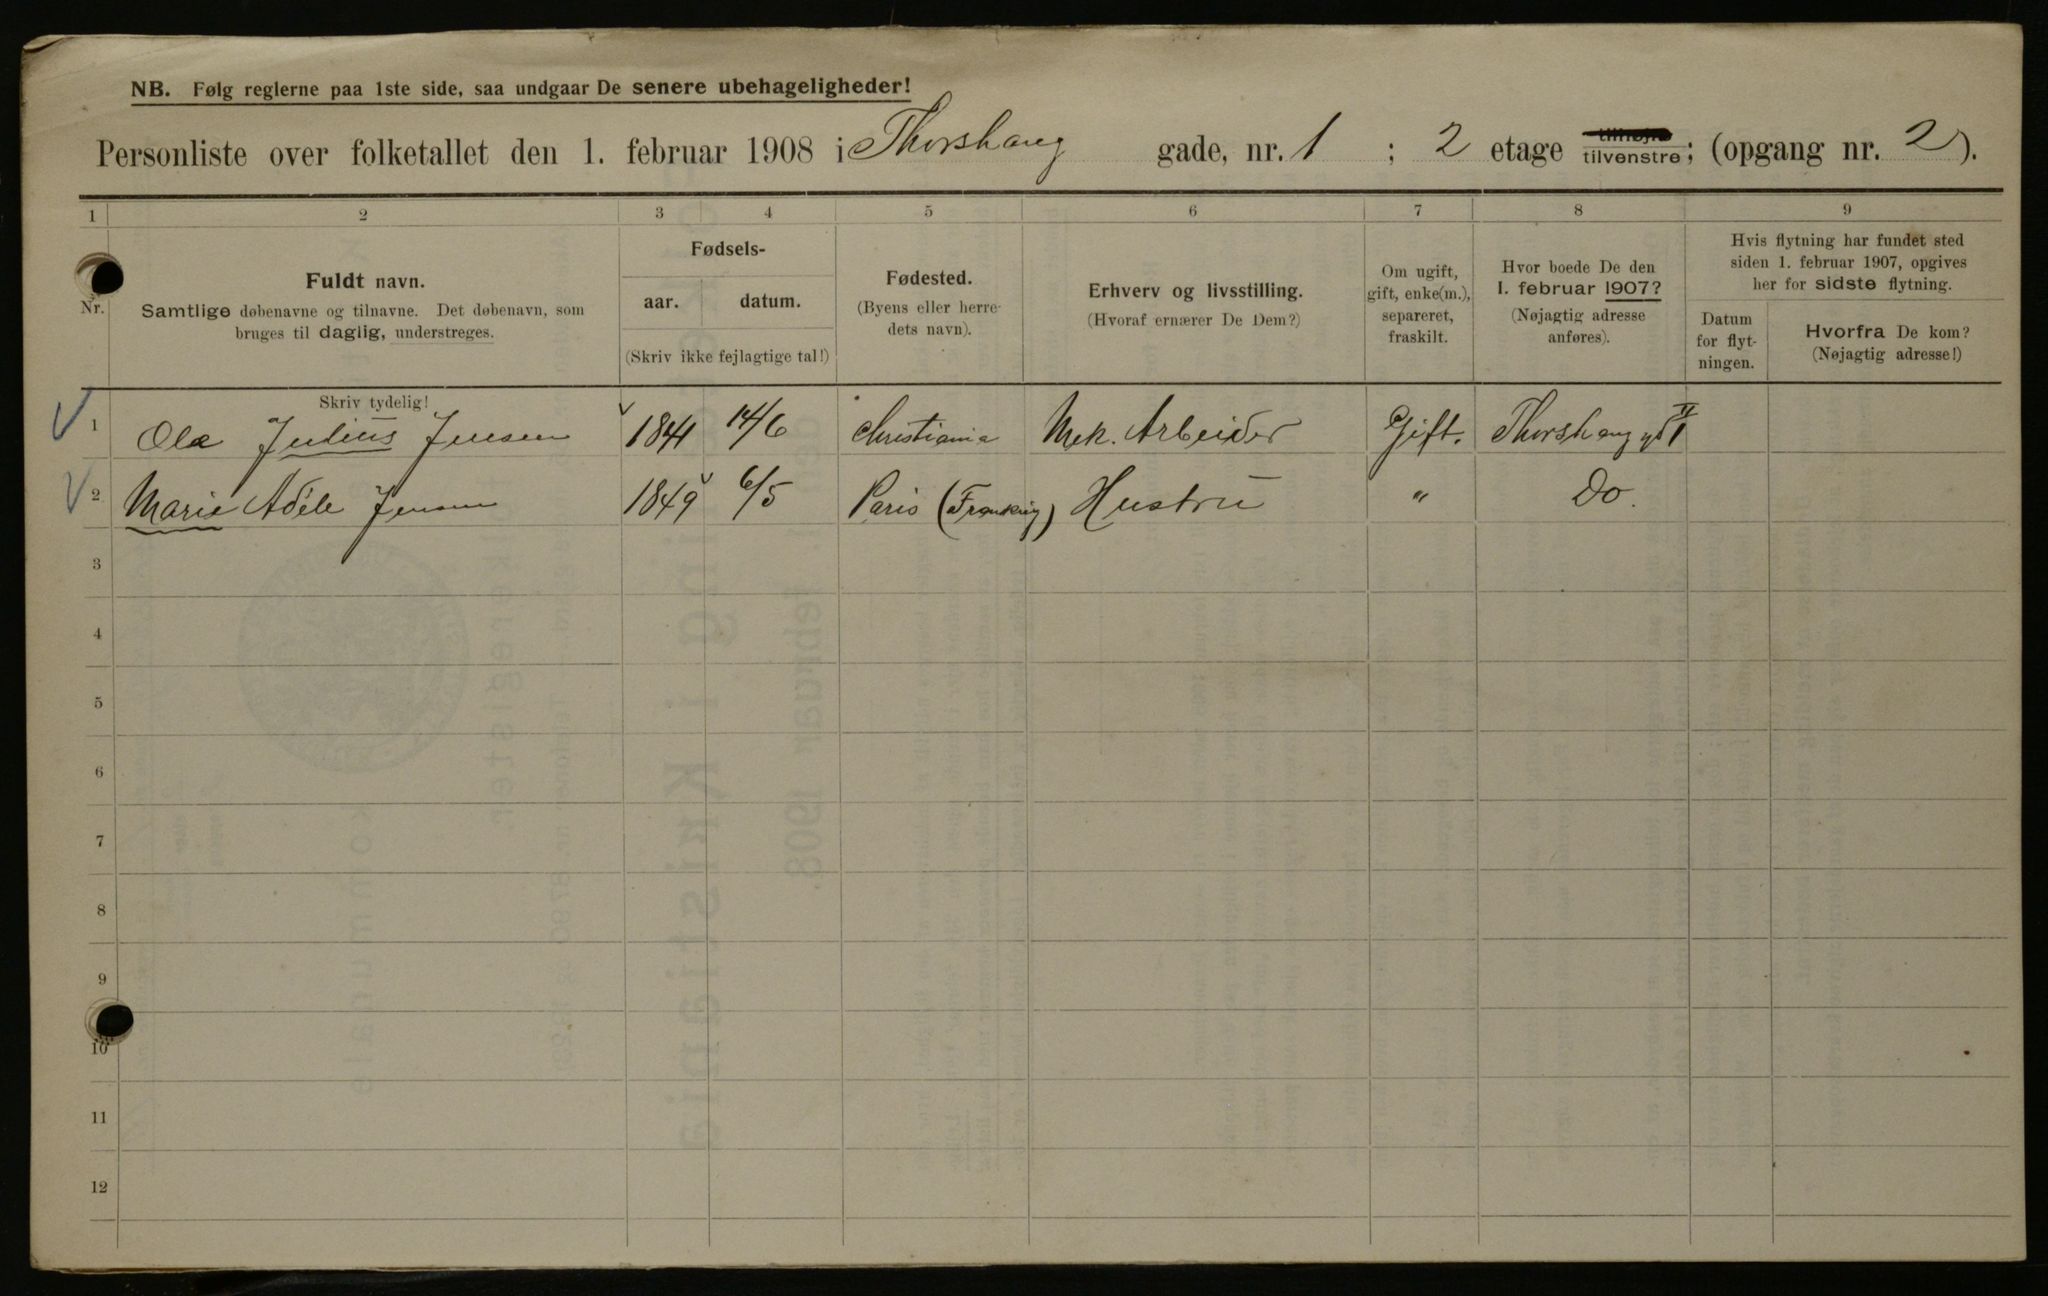 NB. Følg reglerne paa 1ste side, saa undgaar De senere ubehageligheder!
Personliste over folketallet den 1. februar 1908 i Thorshaug gade, nr. 1 ; 2 etage tilhøjre tilvenstre; (opgang nr. 2).
1 2 3 4 5 6 7 8 9
Nr.
Fuldt navn.
Samtlige døbenavne og tilnavne. Det døbenavn, som
bruges til daglig, understreges.
Fødsels-
aar. datum.
(Skriv ikke fejlagtige tal!)
Fødested.
(Byens eller herre-
dets navn).
Erhverv og livsstilling.
(Hvoraf ernærer De Dem?)
Om ugift,
gift, enke(m.),
separeret,
fraskilt.
Hvor boede De den
1. februar 1907?
(Nøjagtig adresse
anføres).
Hvis flytning har fundet sted
siden 1. februar 1907, opgives
her for sidste flytning.
Datum
for flyt-
ningen.
Hvorfra De kom?
(Nøjagtig adresse!)
Skriv tydelig!
1 Ole Julius Jensen 1841 14/6 Christiania Mek. Arbeider Gift. Thorshauggd 1 II
2 Marie Adéle Jensen 1849 6/5 Paris (Frankrig) Hustru " Do.
3
4
5
6
7
8
9
10
11
12